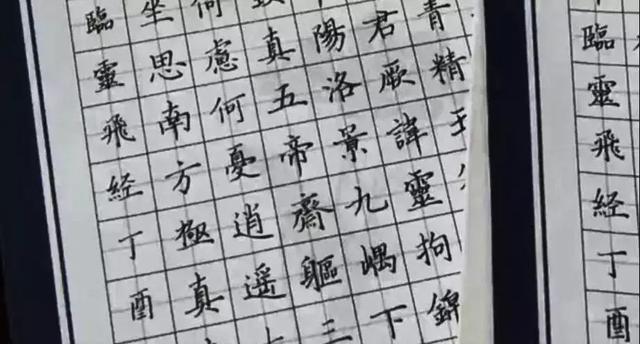 臨靈飛经丁酉
青精
君厥諱靈拘錦
陽洛景九嵎下
真五帝齋軀三
何慮何憂逍遥
坐思南方極真
臨靈飛经丁酉